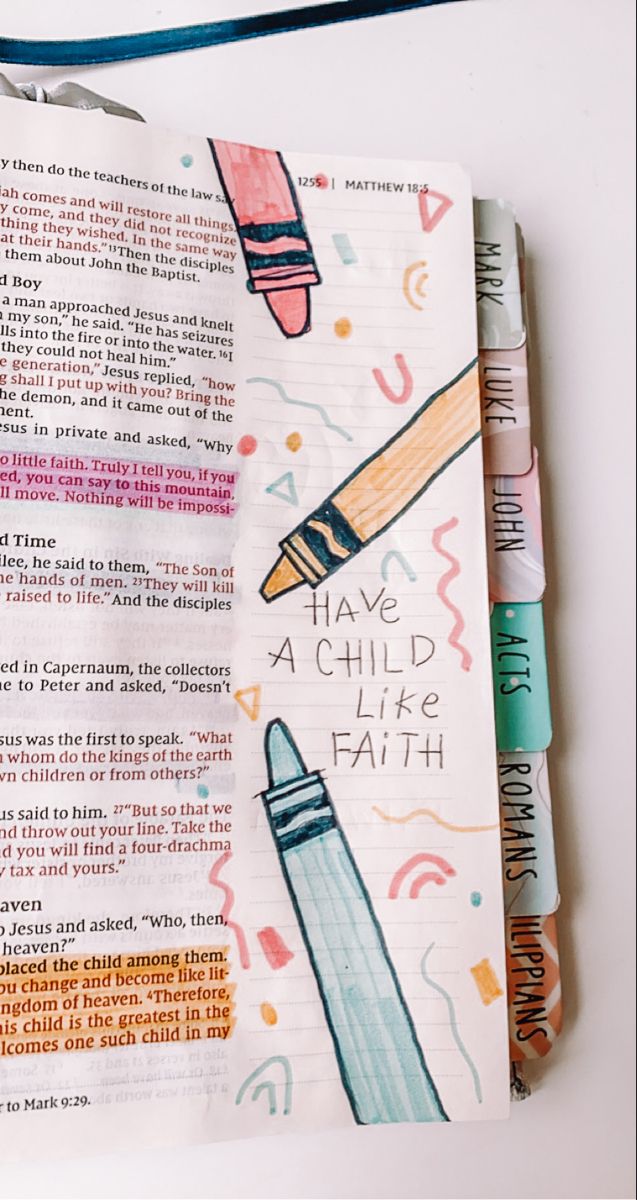 1255 | MATTHEW 18:5
y then do the teachers of the law say
ah comes and will restore all things.
y come, and they did not recognize
thing they wished. In the same way
at their hands.” 13Then the disciples
them about John the Baptist.
d Boy
a man approached Jesus and knelt
my son,” he said. “He has seizures
lls into the fire or into the water. 16I
they could not heal him.”
e generation,” Jesus replied, “how
g shall I put up with you? Bring the
he demon, and it came out of the
ment.
esus in private and asked, “Why
o little faith. Truly I tell you, if you
ed, you can say to this mountain,
ll move. Nothing will be impossi-
d Time
ilee, he said to them, “The Son of
he hands of men. 23They will kill
raised to life.” And the disciples
ed in Capernaum, the collectors
e to Peter and asked, “Doesn’t
sus was the first to speak. “What
whom do the kings of the earth
wn children or from others?”
us said to him. 27“But so that we
nd throw out your line. Take the
d you will find a four-drachma
y tax and yours.”
aven
o Jesus and asked, “Who, then,
heaven?”
placed the child among them.
ou change and become like lit-
ngdom of heaven. 4Therefore,
his child is the greatest in the
lcomes one such child in my
r to Mark 9:29.
HAVE
A CHILD
LiKe
FAiTH
MARK
LUKE
JOHN
ACTS
ROMANS
ILIPPIANS